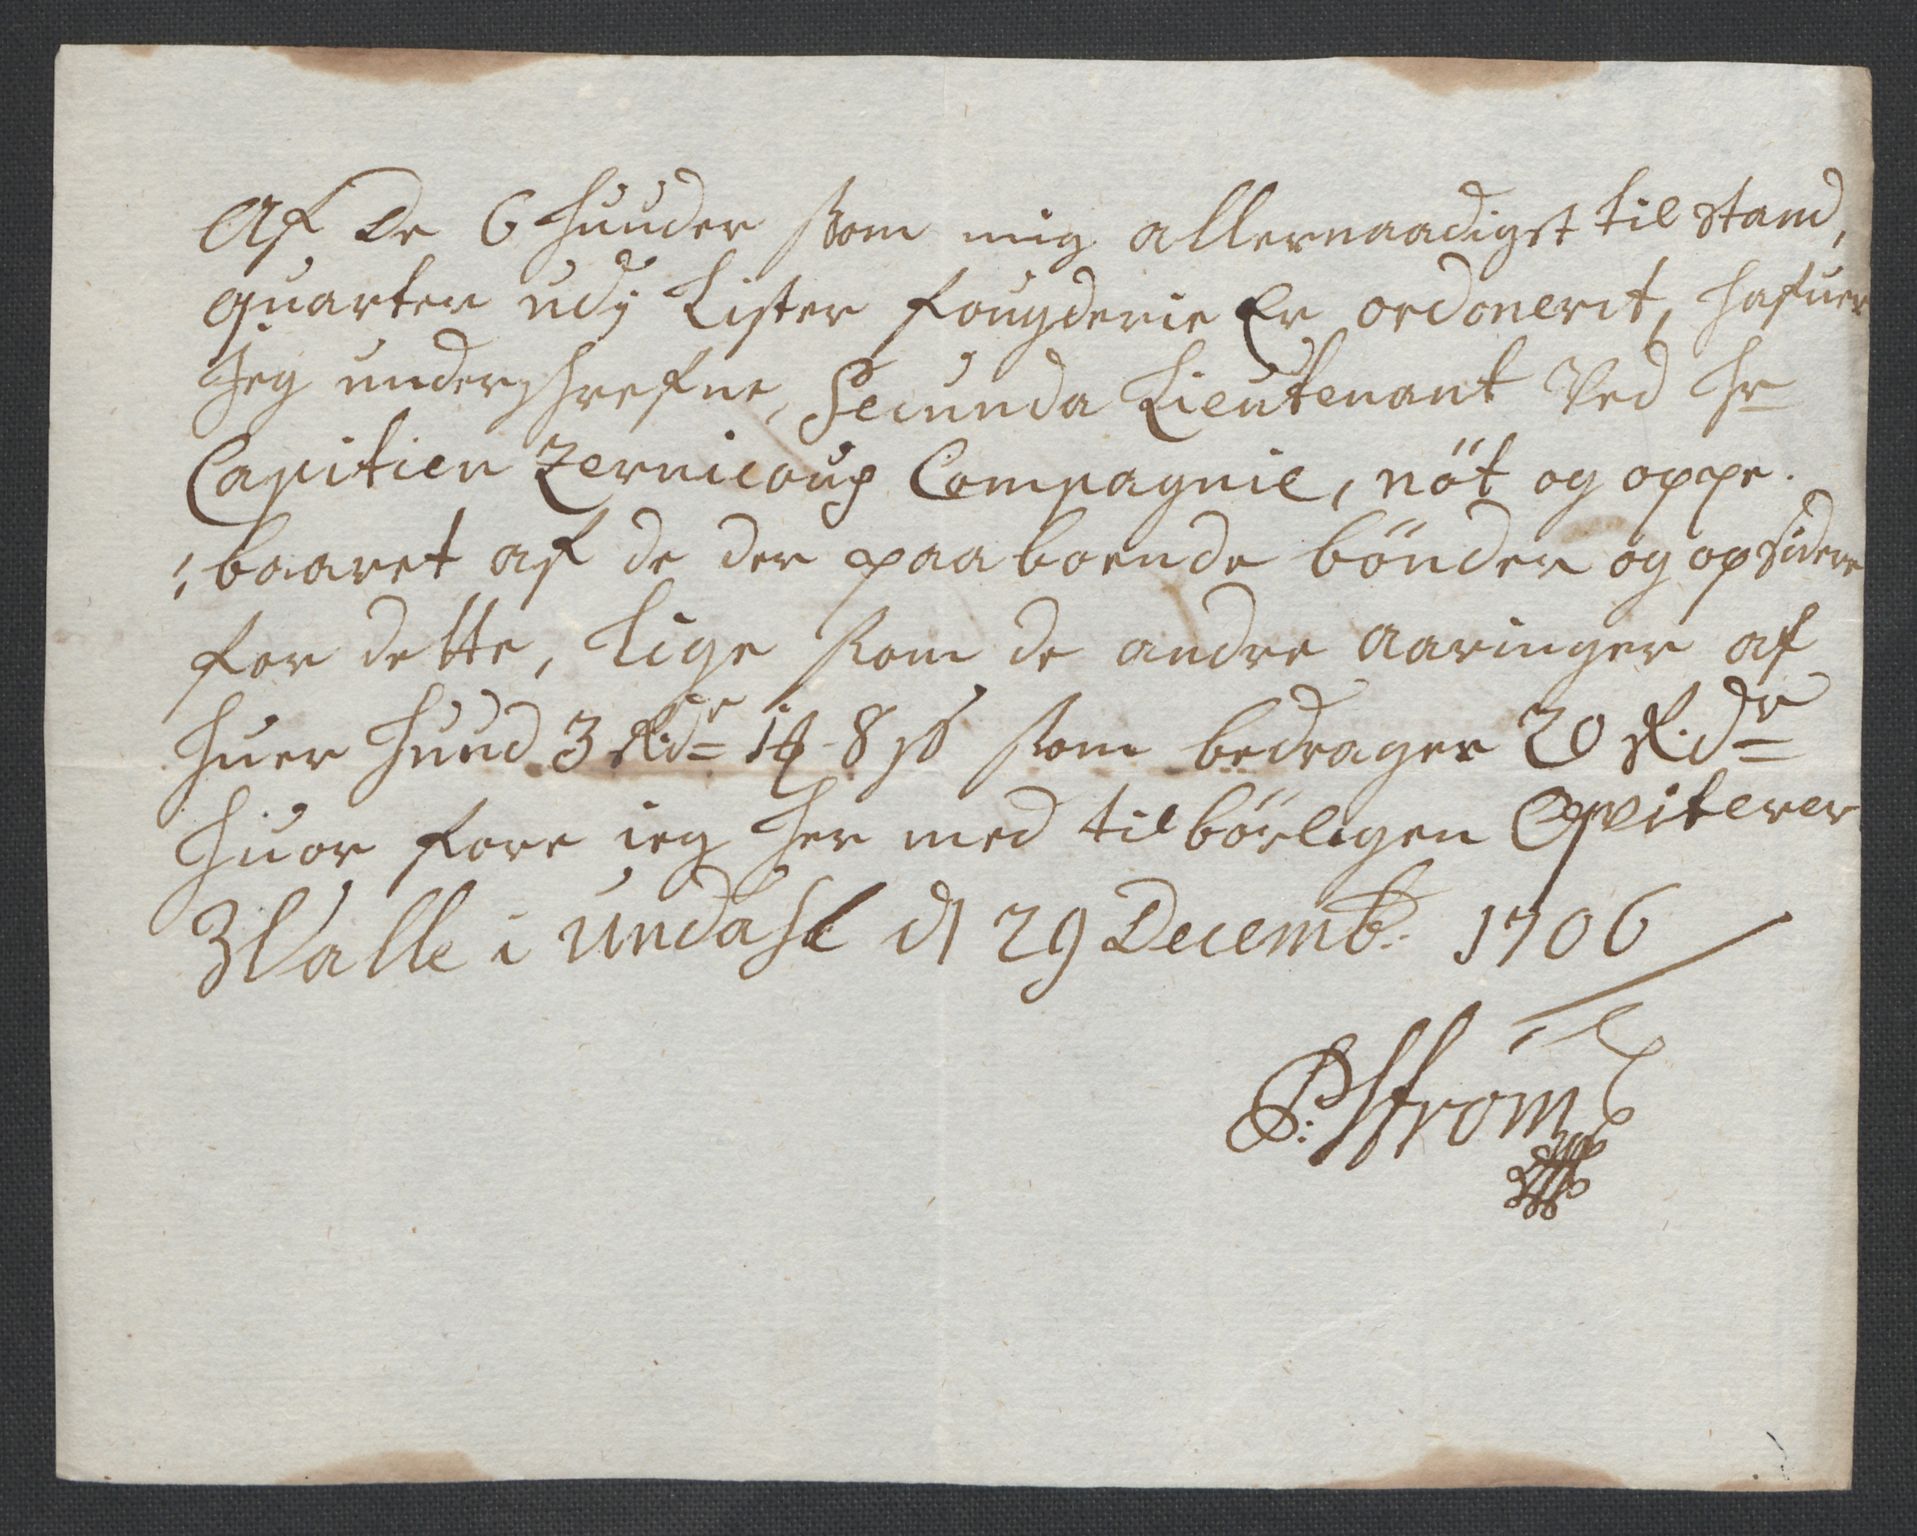 Af De 6 huuder som mig allernaadigst til stand,
quarter udj Lister fougderie Er ordonerit, hafuer
Jeg underschrefne, Secunda Lieutenant Ved Hr
Capitien Zernicoup Compagnie, nöt og oppe.
baaret af de der paaboende bönder og opsidere
for dette, Lige som de andre aaringer af
huer huud 3 Rdr 1 8 ß som bedrager 20 R.dr
huor fore ieg her med tilbörligen Qviterer
Valle i Undahl d 29 Decemb: 1706
P: Ström